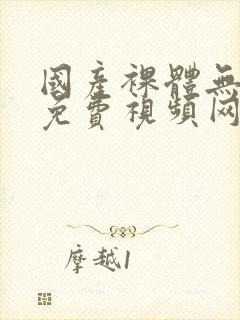 國產裸體無
免費視頻网
摩越1